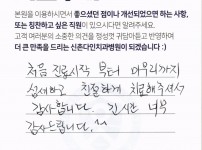 본원을 이용하시면서 좋으셨던 점이나 개선되었으면 하는 사항,
또는 칭찬하고 싶은 직원이 있으시다면 알려주세요.
고객 여러분의 소중한 의견을 정성껏 귀담아듣고 반영하여
더 큰 만족을 드리는 신촌다인치과병원이 되겠습니다 :)
처음 진료시작 부터 마무리까지
섬세하고 친절하게 치료해주셔서
감사합니다. 긴시간 너무
감사드립니다.^^